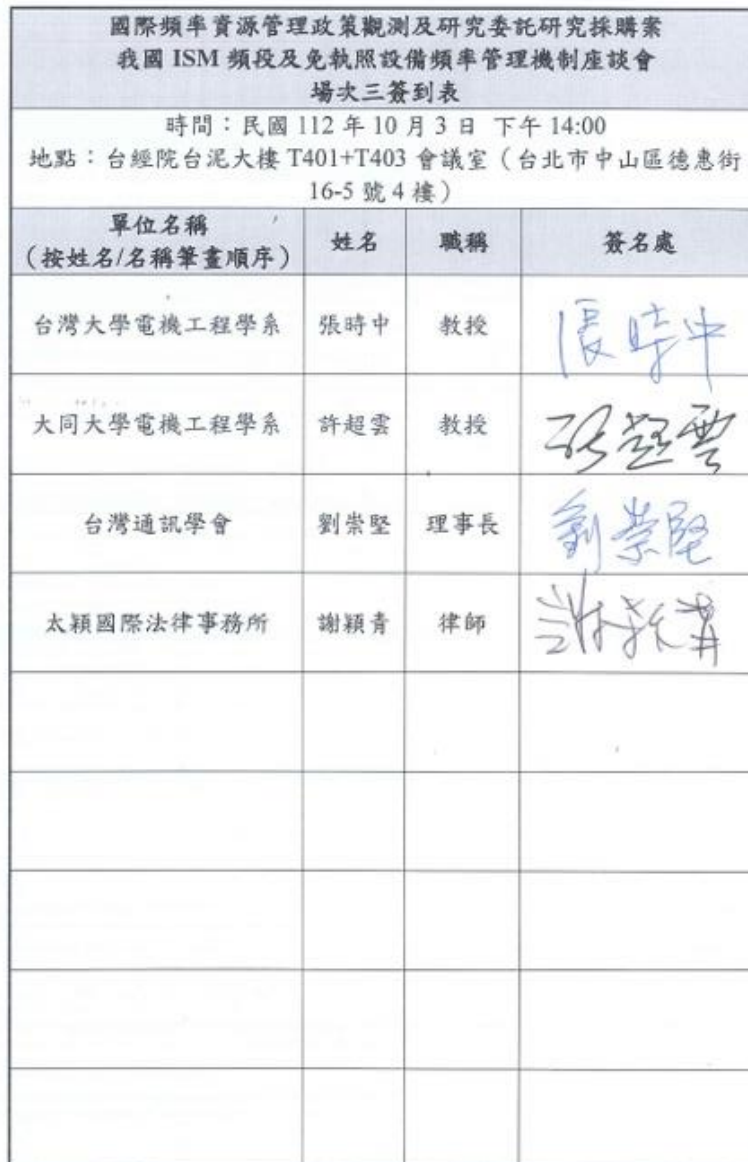 國際頻率資源管理政策觀測及研究委託研究採購案
我國 ISM 頻段及免執照設備頻率管理機制座談會
場次三簽到表
時間：民國 112 年 10 月 3 日 下午 14:00
地點：台經院台泥大樓 T401+T403 會議室（台北市中山區德惠街
16-5 號 4 樓）
單位名稱
（按姓名/名稱筆畫順序） 姓名 職稱 簽名處
台灣大學電機工程學系 張時中 教授 張時中
大同大學電機工程學系 許超雲 教授 許超雲
台灣通訊學會 劉崇堅 理事長 劉崇堅
太穎國際法律事務所 謝穎青 律師 謝穎青